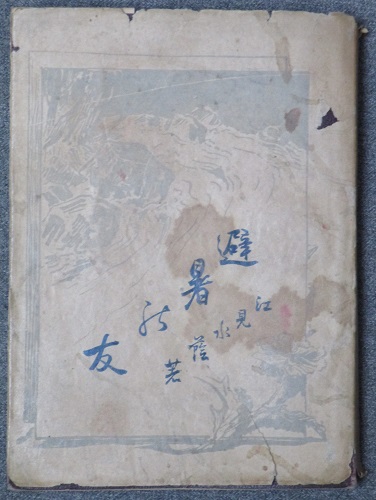 避暑の友
江見水蔭著